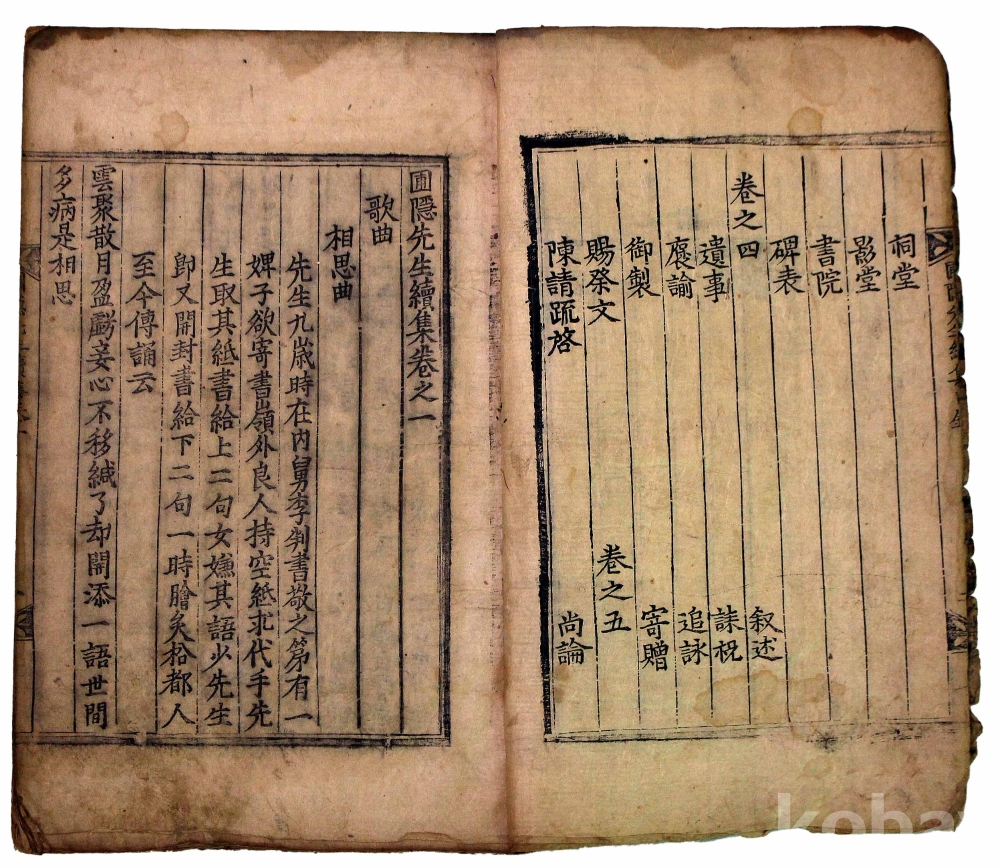 祠堂
影堂
書院
碑表
卷之四 叙述
遺事 誄祝
褒諭 追詠
御製 寄贈
賜祭文 卷之五
陳請疏啓 尚論
圃隱先生續集卷之一
歌曲
相思曲
先生九歲時在內舅李判書敬之第有一
婢子欲寄書嶺外良人持空紙求代手先
生取其紙書給上二句女嫌其語少先生
卽又開封書給下二句一時膾炙松都人
至今傳誦云
雲聚散月盈虧妾心不移緘了却開添一語世間
多病是相思
koba